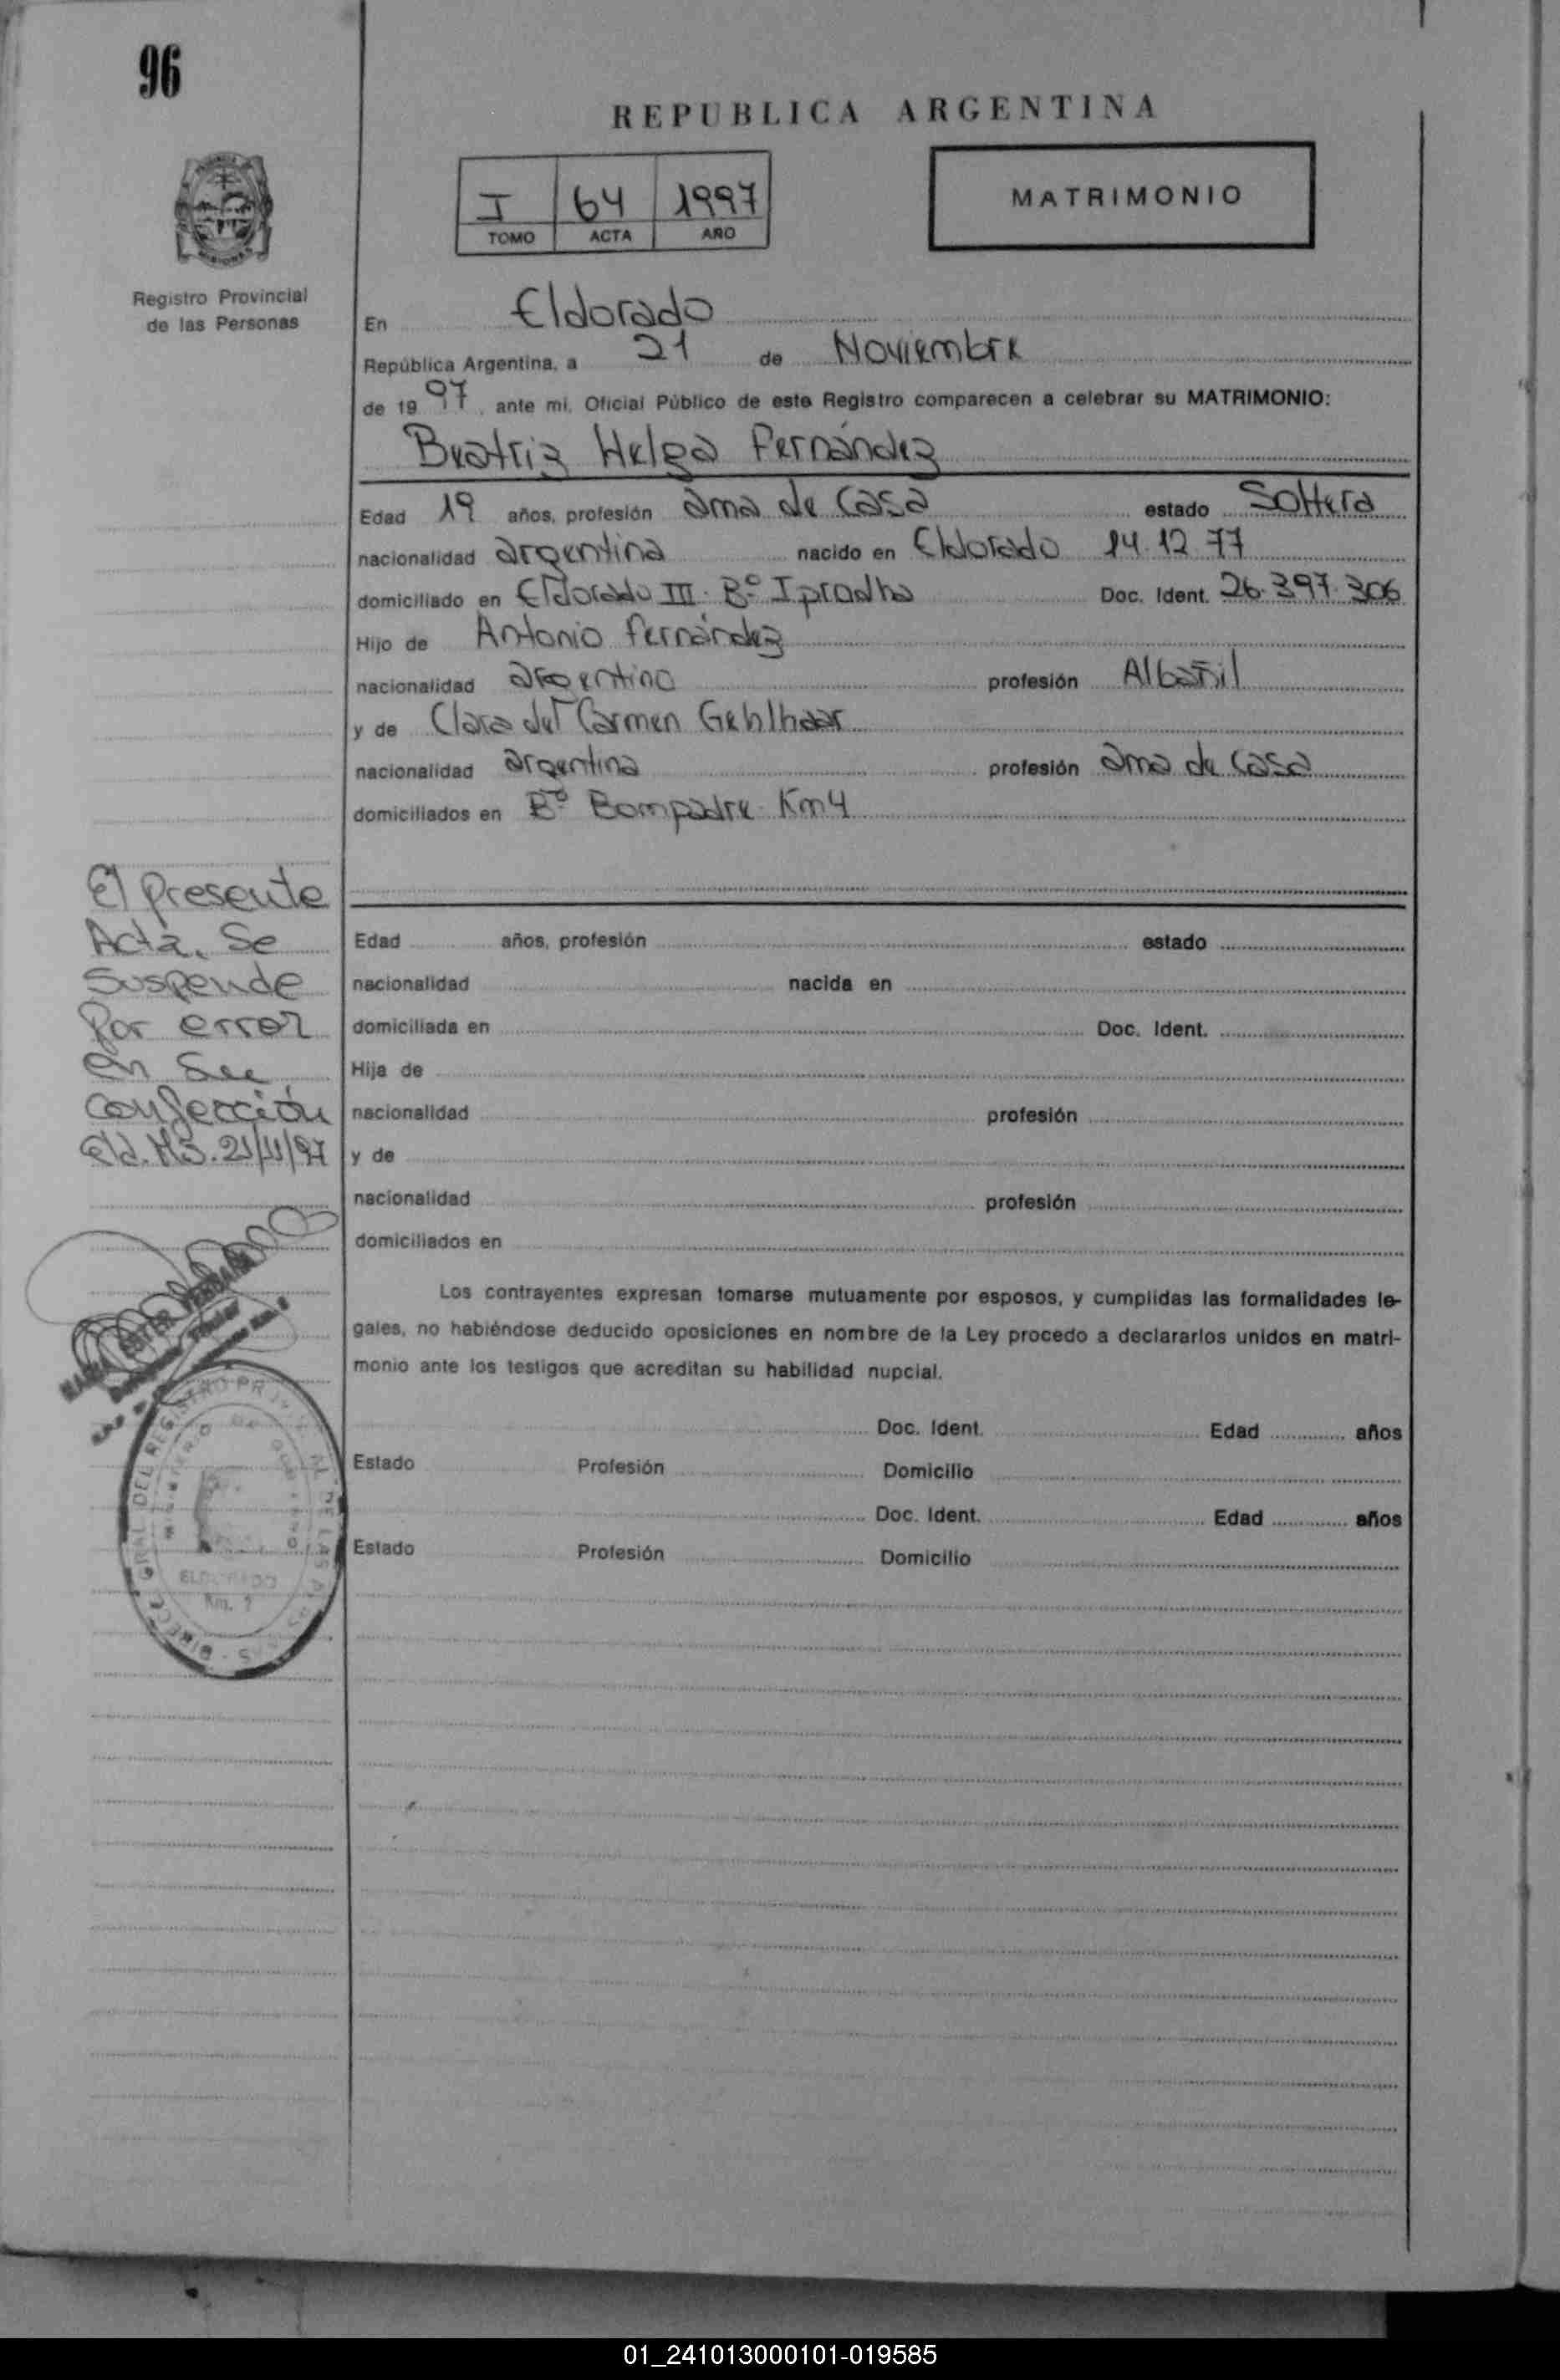 96
REPUBLICA ARGENTINA
I 64 1997
TOMO ACTA AÑO
MATRIMONIO
Registro Provincial
de las Personas
En Eldorado
República Argentina, a 21 de Noviembre
de 19 97, ante mi, Oficial Público de este Registro comparecen a celebrar su MATRIMONIO:
Beatriz Helga Fernández
Edad 19 años, profesión ama de casa estado Soltera
nacionalidad argentina nacido en Eldorado 14.12.77
domiciliado en Eldorado III. Bº Iprodha Doc. Ident. 26.397.306
Hijo de Antonio Fernández
nacionalidad argentino profesión Albañil
y de Clara del Carmen Gehlhaar
nacionalidad argentina profesión ama de casa
domiciliados en Bº Bompadre Km 4
El presente
Acta, Se
Suspende
Por error
en Su
confección
Eld. Ms. 21/11/97
Edad años, profesión estado
nacionalidad nacida en
domiciliada en Doc. Ident.
Hija de
nacionalidad profesión
y de
nacionalidad profesión
domiciliados en
Los contrayentes expresan tomarse mutuamente por esposos, y cumplidas las formalidades le-
gales, no habiéndose deducido oposiciones en nombre de la Ley procedo a declararlos unidos en matri-
monio ante los testigos que acreditan su habilidad nupcial.
Doc. Ident. Edad años
Estado Profesión Domicilio
Doc. Ident. Edad años
Estado Profesión Domicilio
ELDORADO
Km.
01_241013000101-019585